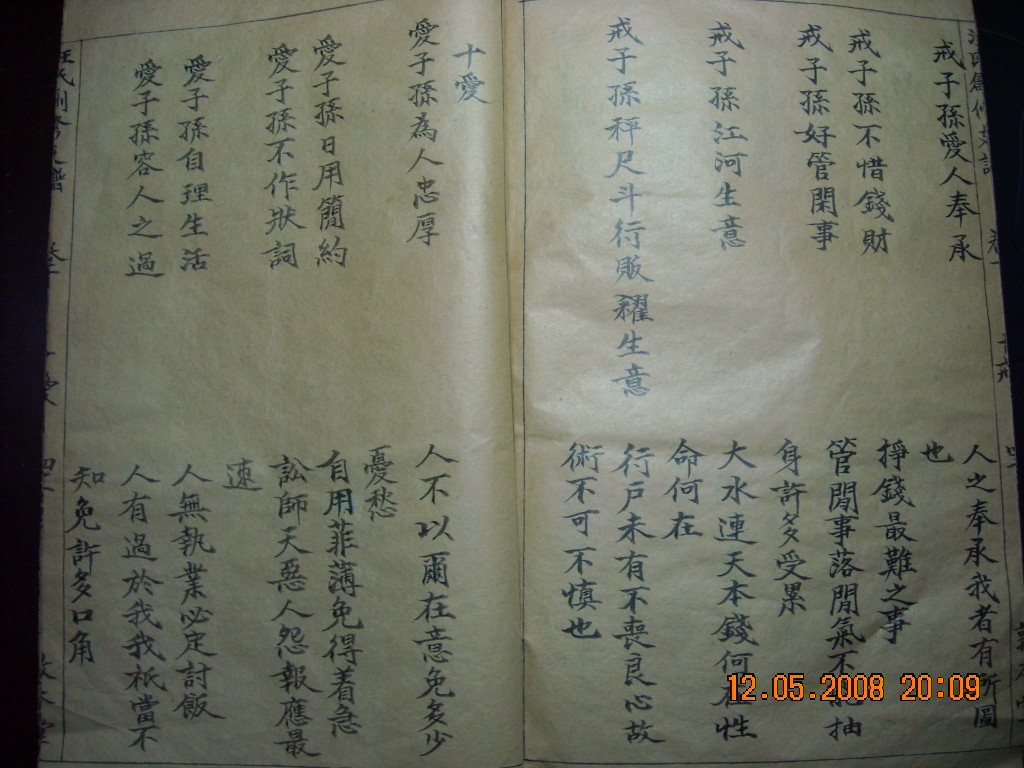 戒子孫愛人奉承
人之奉承我者有所圖
也
戒子孫不惜錢財
掙錢最難之事
戒子孫好管閑事
管閒事落閒氣不能抽
身許多受累
戒子孫江河生意
大水連天本錢何在性
命何在
戒子孫秤尺斗行販糴生意
行戶未有不喪良心故
術不可不慎也
十愛
愛子孫為人忠厚
人不以爾在意免多少
憂愁
愛子孫日用簡約
自用菲薄免得着急
愛子孫不作狀詞
訟師天惡人怨報應最
速
愛子孫自理生活
人無執業必定討飯
愛子孫容人之過
人有過於我我祇當不
知免許多口角
12.05.2008 20:09